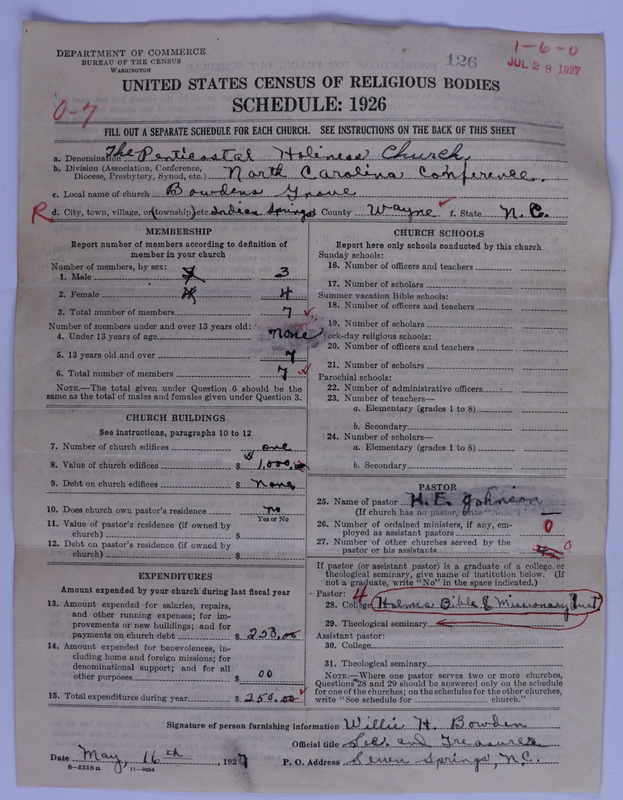 DEPARTMENT OF COMMERCE
BUREAU OF THE CENSUS
WASHINGTON
126
1-6-0
JUL 28 1927
UNITED STATES CENSUS OF RELIGIOUS BODIES
SCHEDULE: 1926
0-7
FILL OUT A SEPARATE SCHEDULE FOR EACH CHURCH. SEE INSTRUCTIONS ON THE BACK OF THIS SHEET
a. Denomination The Penticostal Holiness Church
b. Division (Association, Conference, Diocese, Presbytery, Synod, etc.) North Carolina Conference.
c. Local name of church Bowdens Grove
R d. City, town, village, or (township) etc. Indian Springs County Wayne f. State N.C.
MEMBERSHIP
Report number of members according to definition of member in your church
Number of members, by sex:
1. Male 3
2. Female 4
3. Total number of members 7
Number of members under and over 13 years old:
4. Under 13 years of age none
5. 13 years old and over 7
6. Total number of members 7
NOTE.—The total given under Question 6 should be the same as the total of males and females given under Question 3.
CHURCH BUILDINGS
See instructions, paragraphs 10 to 12
7. Number of church edifices one
8. Value of church edifices $ 1,000
9. Debt on church edifices $ None
10. Does church own pastor's residence no
Yes or No
11. Value of pastor's residence (if owned by church) $
12. Debt on pastor's residence (if owned by church) $
EXPENDITURES
Amount expended by your church during last fiscal year
13. Amount expended for salaries, repairs, and other running expenses; for improvements or new buildings; and for payments on church debt $ 250.00
14. Amount expended for benevolences, including home and foreign missions; for denominational support; and for all other purposes $ 00
15. Total expenditures during year $ 250.00
CHURCH SCHOOLS
Report here only schools conducted by this church
Sunday schools:
16. Number of officers and teachers
17. Number of scholars
Summer vacation Bible schools:
18. Number of officers and teachers
19. Number of scholars
Week-day religious schools:
20. Number of officers and teachers
21. Number of scholars
Parochial schools:
22. Number of administrative officers
23. Number of teachers—
a. Elementary (grades 1 to 8)
b. Secondary
24. Number of scholars—
a. Elementary (grades 1 to 8)
b. Secondary
PASTOR
25. Name of pastor H. E. Johnson
(If church has no pastor, write "None")
26. Number of ordained ministers, if any, employed as assistant pastors 0
27. Number of other churches served by the pastor or his assistants 0
If pastor (or assistant pastor) is a graduate of a college or theological seminary, give name of institution below. (If not a graduate, write "No" in the space indicated.)
Pastor: 4
28. College Holmes Bible & Missionary Inst
29. Theological seminary
Assistant pastor:
30. College
31. Theological seminary
NOTE.—Where one pastor serves two or more churches, Questions 28 and 29 should be answered only on the schedule for one of the churches; on the schedules for the other churches, write "See schedule for church."
Signature of person furnishing information Willie H. Bowden
Official title Sec. and Treasurer
Date May, 16th, 1927 P. O. Address Seven Springs, N.C.
8-5518a 11-9054